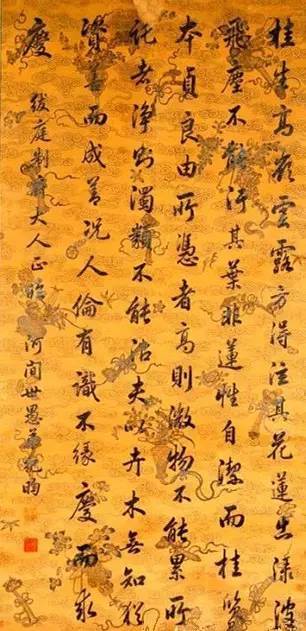 桂生高嶺雲露方得泫其花蓮出渌波
飛塵不能汙其葉非蓮性自潔而桂質
本貞良由所憑者高則微物不能累所
託者淨則濁類不能沾夫以卉木無知猶
資善而成善況人倫有識不緣慶而求
慶
紱庭制府大人正臨 河間世愚弟紀昀